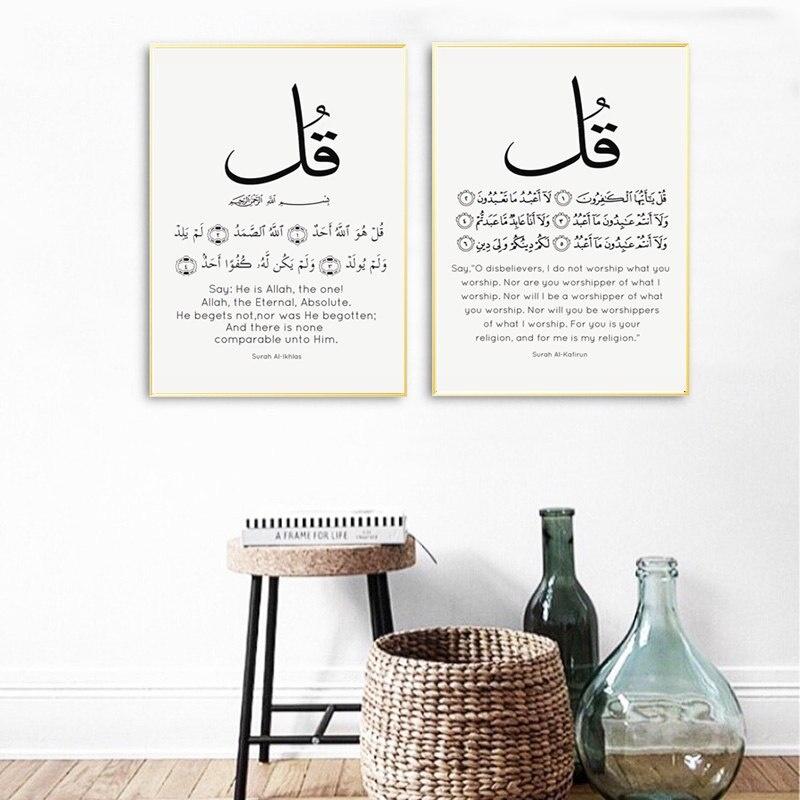 قُل
بِسْمِ اللَّهِ الرَّحْمَٰنِ الرَّحِيمِ
قُلْ هُوَ ٱللَّهُ أَحَدٌ ۝١ ٱللَّهُ ٱلصَّمَدُ ۝٢ لَمْ يَلِدْ
وَلَمْ يُولَدْ ۝٣ وَلَمْ يَكُن لَّهُۥ كُفُوًا أَحَدٌ ۝٤
Say: He is Allah, the one!
Allah, the Eternal, Absolute.
He begets not,nor was He begotten;
And there is none
comparable unto Him.
Surah Al-Ikhlas
قُل
قُلْ يَٰٓأَيُّهَا ٱلْكَٰفِرُونَ ۝١ لَآ أَعْبُدُ مَا تَعْبُدُونَ ۝٢
وَلَآ أَنتُمْ عَٰبِدُونَ مَآ أَعْبُدُ ۝٣ وَلَآ أَنَا۠ عَابِدٌ مَّا عَبَدتُّمْ ۝٤
وَلَآ أَنتُمْ عَٰبِدُونَ مَآ أَعْبُدُ ۝٥ لَكُمْ دِينُكُمْ وَلِىَ دِينِ ۝٦
Say,"O disbelievers, I do not worship what you
worship. Nor are you worshipper of what I
worship. Nor will I be a worshipper of what
you worship. Nor will you be worshippers
of what I worship. For you is your
religion, and for me is my religion."
Surah Al-Kafirun
A FRAME FOR LIFE